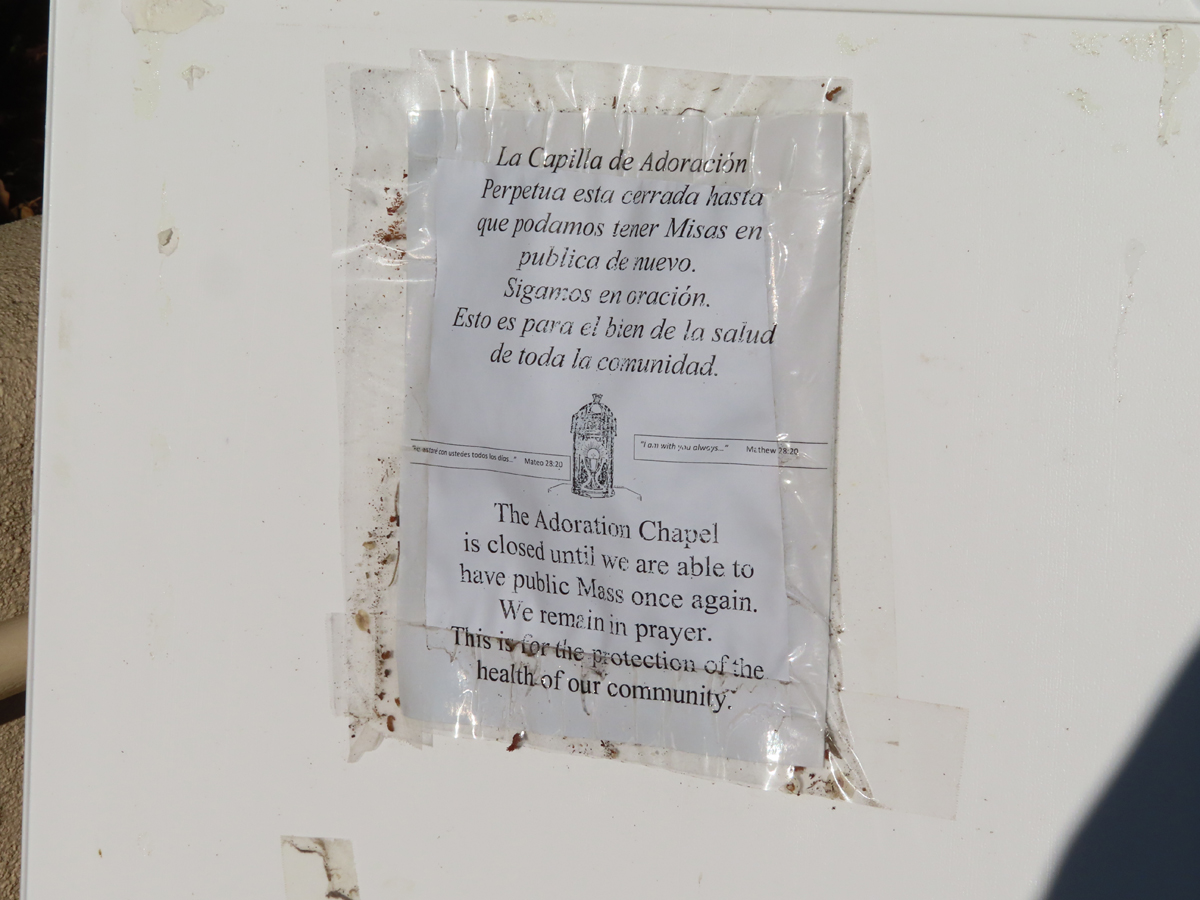 La Capilla de Adoración
Perpetua esta cerrada hasta
que podamos tener Misas en
publica de nuevo.
Sigamos en oración.
Esto es para el bien de la salud
de toda la comunidad.
estaré con ustedes todos los días..." Mateo 28:20
"I am with you always..." Mathew 28:20
The Adoration Chapel
is closed until we are able to
have public Mass once again.
We remain in prayer.
This is for the protection of the
health of our community.